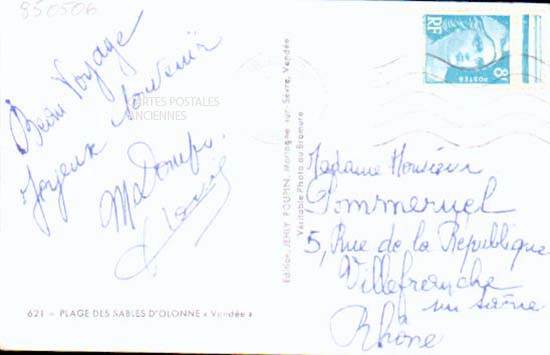 950506
Beau Voyage
Joyeux souvenir
CARTES POSTALES
ANCIENNES
621 — PLAGE DES SABLES D'OLONNE « Vendée »
Edition JEHLY POUPIN, Mortagne-sur-Sèvre, Vendée
Véritable Photo au Bromure
RF
8F
POSTES
Madame Monsieur
Pommeruel
5, Rue de la République
Villefranche
sur saône
Rhône